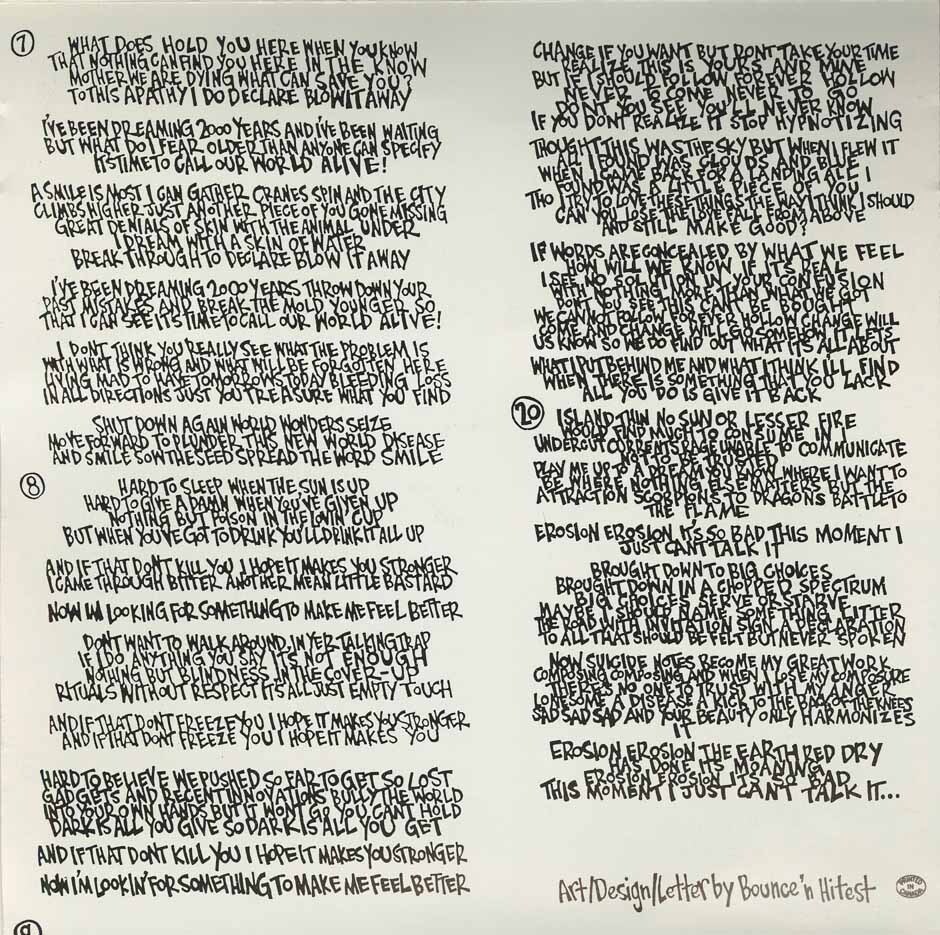 7
WHAT DOES HOLD YOU HERE WHEN YOU KNOW
THAT NOTHING CAN FIND YOU HERE IN THE KNOW
MOTHER WE ARE DYING WHAT CAN SAVE YOU?
TO THIS APATHY I DO DECLARE BLOW IT AWAY
I'VE BEEN DREAMING 2000 YEARS AND I'VE BEEN WAITING
BUT WHAT DO I FEAR OLDER THAN ANYONE CAN SPECIFY
IT'S TIME TO CALL OUR WORLD ALIVE!
A SMILE IS MOST I CAN GATHER CRANES SPIN AND THE CITY
CLIMBS HIGHER JUST ANOTHER PIECE OF YOU GONE MISSING
GREAT DENIALS OF SKIN WITH THE ANIMAL UNDER
I DREAM WITH A SKIN OF WATER
BREAK THROUGH TO DECLARE BLOW IT AWAY
I'VE BEEN DREAMING 2000 YEARS THROW DOWN YOUR
PAST MISTAKES AND BREAK THE MOLD YOUNGER SO
THAT I CAN SEE IT'S TIME TO CALL OUR WORLD ALIVE!
I DON'T THINK YOU REALLY SEE WHAT THE PROBLEM IS
WITH WHAT IS WRONG AND WHAT WILL BE FORGOTTEN HERE
LIVING MAD TO HAVE TOMORROWS TODAY BLEEDING LOSS
IN ALL DIRECTIONS JUST YOU TREASURE WHAT YOU FIND
SHUT DOWN AGAIN WORLD WONDERS SEIZE
MOVE FORWARD TO PLUNDER THIS NEW WORLD DISEASE
AND SMILE SOW THE SEED SPREAD THE WORD SMILE
8
HARD TO SLEEP WHEN THE SUN IS UP
HARD TO GIVE A DAMN WHEN YOU'VE GIVEN UP
NOTHING BUT POISON IN THE LOVIN' CUP
BUT WHEN YOU'VE GOT TO DRINK YOU'LL DRINK IT ALL UP
AND IF THAT DON'T KILL YOU I HOPE IT MAKES YOU STRONGER
I CAME THROUGH BITTER ANOTHER MEAN LITTLE BASTARD
NOW IM LOOKING FOR SOMETHING TO MAKE ME FEEL BETTER
DON'T WANT TO WALK AROUND IN YER TALKING TRAP
IF I DO ANYTHING YOU SAY IT'S NOT ENOUGH
NOTHING BUT BLINDNESS IN THE COVER-UP
RITUALS WITHOUT RESPECT IT'S ALL JUST EMPTY TOUCH
AND IF THAT DONT FREEZE YOU I HOPE IT MAKES YOU STRONGER
AND IF THAT DONT FREEZE YOU I HOPE IT MAKES YOU
HARD TO BELIEVE WE PUSHED SO FAR TO GET SO LOST
GADGETS AND RECENT INNOVATIONS BULLY THE WORLD
INTO YOUR OWN HANDS BUT IT WON'T GO YOU CAN'T HOLD
DARK IS ALL YOU GIVE SO DARK IS ALL YOU GET
AND IF THAT DONT KILL YOU I HOPE IT MAKES YOU STRONGER
NOW I'M LOOKIN' FOR SOMETHING TO MAKE ME FEEL BETTER
9
CHANGE IF YOU WANT BUT DONT TAKE YOUR TIME
REALIZE THIS IS YOURS AND MINE
BUT IF I SHOULD FOLLOW FOREVER HOLLOW
NEVER IS COME NEVER TO GO
DON'T YOU SEE YOU'LL NEVER KNOW
IF YOU DON'T REALIZE IT STOP HYPNOTIZING
THOUGHT THIS WAS THE SKY BUT WHEN I FLEW IT
ALL I FOUND WAS CLOUDS AND BLUE
WHEN I CAME BACK FOR A LANDING ALL I
FOUND WAS A LITTLE PIECE OF YOU
THO I TRY TO LOVE THESE THINGS THE WAY I THINK I SHOULD
CAN YOU LOSE THE LOVE FALL FROM ABOVE
AND STILL MAKE GOOD?
IF WORDS ARE CONCEALED BY WHAT WE FEEL
HOW WILL WE KNOW IF IT'S REAL
I SEE NO SOLUTION IN YOUR CONFUSION
WITH NOTHING MORE THAN WHAT WE GOT
DON'T YOU SEE THIS CAN'T BE BOUGHT
WE CANNOT FOLLOW FOREVER HOLLOW CHANGE WILL
COME AND CHANGE WILL GO SOMEHOW IT LETS
US KNOW SO WE DO FIND OUT WHAT IT'S ALL ABOUT
WHAT I PUT BEHIND ME AND WHAT I THINK ILL FIND
WHEN THERE IS SOMETHING THAT YOU LACK
ALL YOU DO IS GIVE IT BACK
10
ISLAND THIN NO SUN OR LESSER FIRE
WOULD FIND MUCH TO CONSUME IN I
UNDERCUT CURRENTS ROSE UNABLE TO COMMUNICATE
PLAY ME UP TO A
BE WHERE NOTHING ELSE MATTERS BUT THE
ATTRACTION SCORPIONS TO DRAGONS BATTLE TO
THE FLAME
EROSION EROSION IT'S SO BAD THIS MOMENT I
JUST CAN'T TALK IT
BROUGHT DOWN TO BIG CHOICES
BROUGHT DOWN IN A CHOPPED SPECTRUM
BIG CHOICES SERVE OR STARVE
MAYBE I SHOULD NAME SOMETHING LITTER
THE ROAD WITH INVITATION SIGN A DECLARATION
TO ALL THAT SHOULD BE FELT BUT NEVER SPOKEN
NOW SUICIDE NOTES BECOME MY GREAT WORK
COMPOSING COMPOSING AND WHEN I LOSE MY COMPOSURE
THERE'S NO ONE TO TRUST WITH MY ANGER
LONESOME A DISEASE A KICK TO THE BACK OF THE KNEES
SAD SAD SAD AND YOUR BEAUTY ONLY HARMONIZES
IT
EROSION EROSION THE EARTH RED DRY
HAS DONE ITS MOANING
EROSION EROSION IT'S SO BAD
THIS MOMENT I JUST CAN'T TALK IT...
Art/Design/Letter by Bounce 'n Hitest
PRINTED IN CANADA